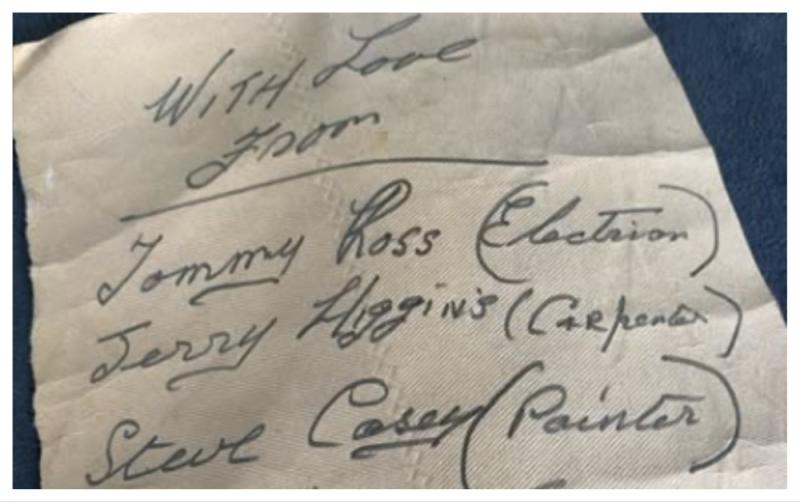 WITH Love
From
Tommy Ross (Electrion)
Jerry Higgin's (CARpenter)
Steve Casey (Painter)